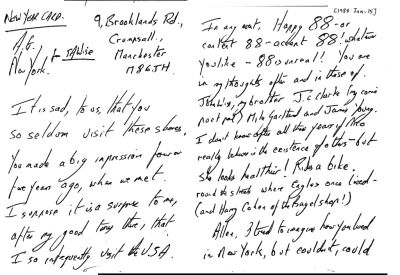 NEW YORK CARD.
A.G.
New York. for JAWise
9, Brooklands Rd.,
Crumpsall,
Manchester
M8 6JH.
It is sad, to us, that you
so seldom visit these shores.
You made a big impression four or
five years ago, when we met.
I suppose it is a surprise to me,
after my good time there, that
I so infrequently visit the U.S.A.
[1988 Jan. 15]
In any event, Happy 88 - or
88 - accent 88! whatever
you like - 88 is unreal! You are
in my thoughts often and in those of
John Wise, my brother J.C. Clarke (my comic
not me) Mike Garland and James Young.
I don't know after all this years of
really believe in the existence of others - but
she looks healthier. Rides a bike.
round the streets where Eagles once lived -
(and Harry Cohen of the Bagel shop!)
Allen, I tried to imagine how you lived
in New York, but couldn't, could